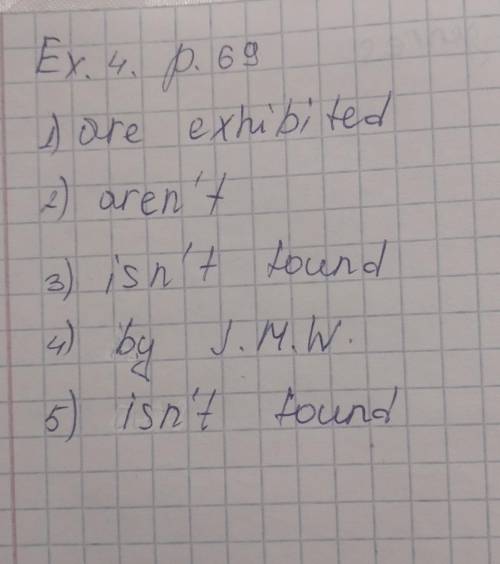 Ex. 4. p. 69
1) are exhibited
2) aren't
3) isn't found
4) by J.M.W.
5) isn't found